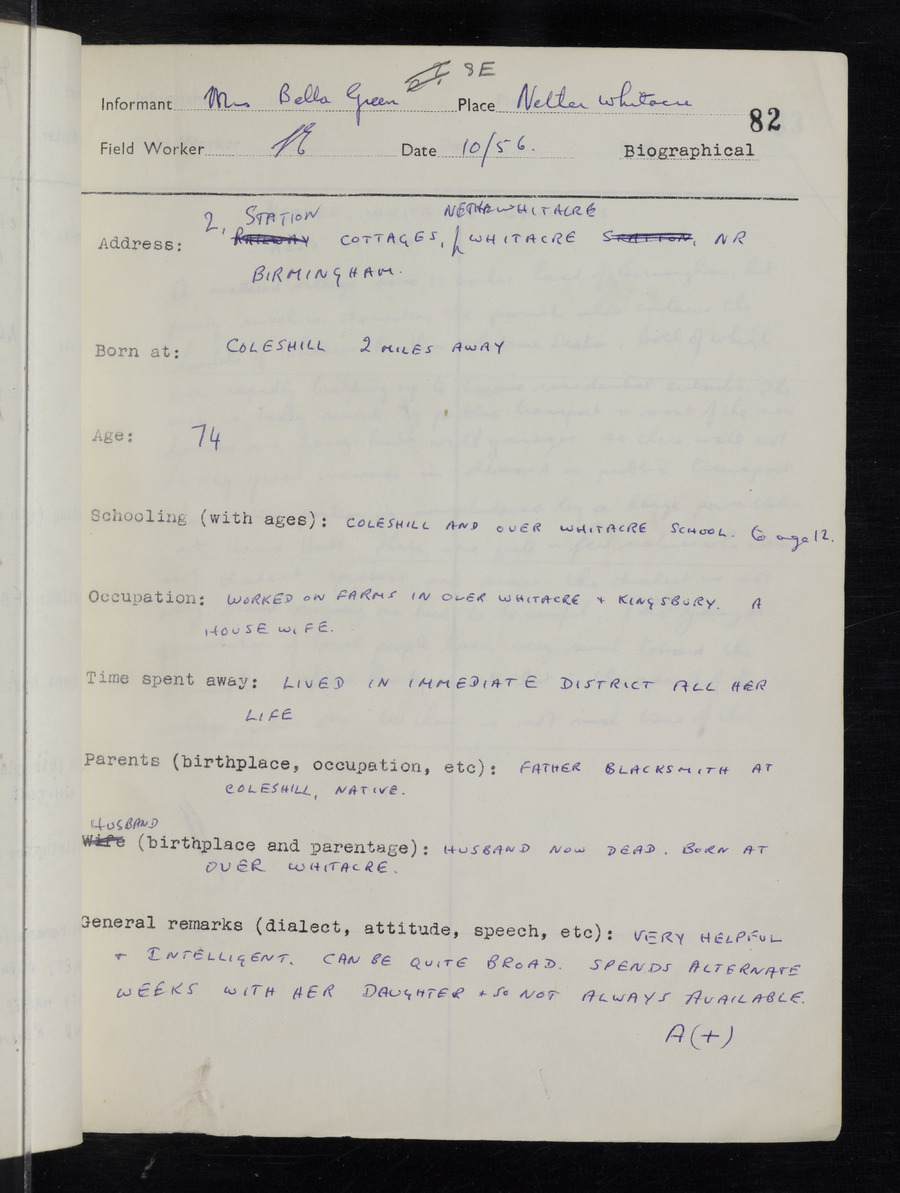 8E
Informant Mrs Bella Green Place Nether Whitacre
82
Field Worker Date 10/56.
Biographical
NETHER WHITACRE
Address: 2, STATION RAILWAY COTTAGES, WHITACRE STATION, NR
BIRMINGHAM.
Born at: COLESHILL 2 MILES AWAY
Age: 74
Schooling (with ages): COLESHILL AND OVER WHITACRE SCHOOL. to age 12.
Occupation: WORKED ON FARMS IN OVER WHITACRE + KINGSBURY. A
HOUSEWIFE.
Time spent away: LIVED IN IMMEDIATE DISTRICT ALL HER
LIFE
Parents (birthplace, occupation, etc): FATHER BLACKSMITH AT
COLESHILL, NATIVE.
HUSBAND
Wife (birthplace and parentage): HUSBAND NOW DEAD. BORN AT
OVER WHITACRE.
General remarks (dialect, attitude, speech, etc): VERY HELPFUL
+ INTELLIGENT. CAN BE QUITE BROAD. SPENDS ALTERNATE
WEEKS WITH HER DAUGHTER + SO NOT ALWAYS AVAILABLE.
A(+)